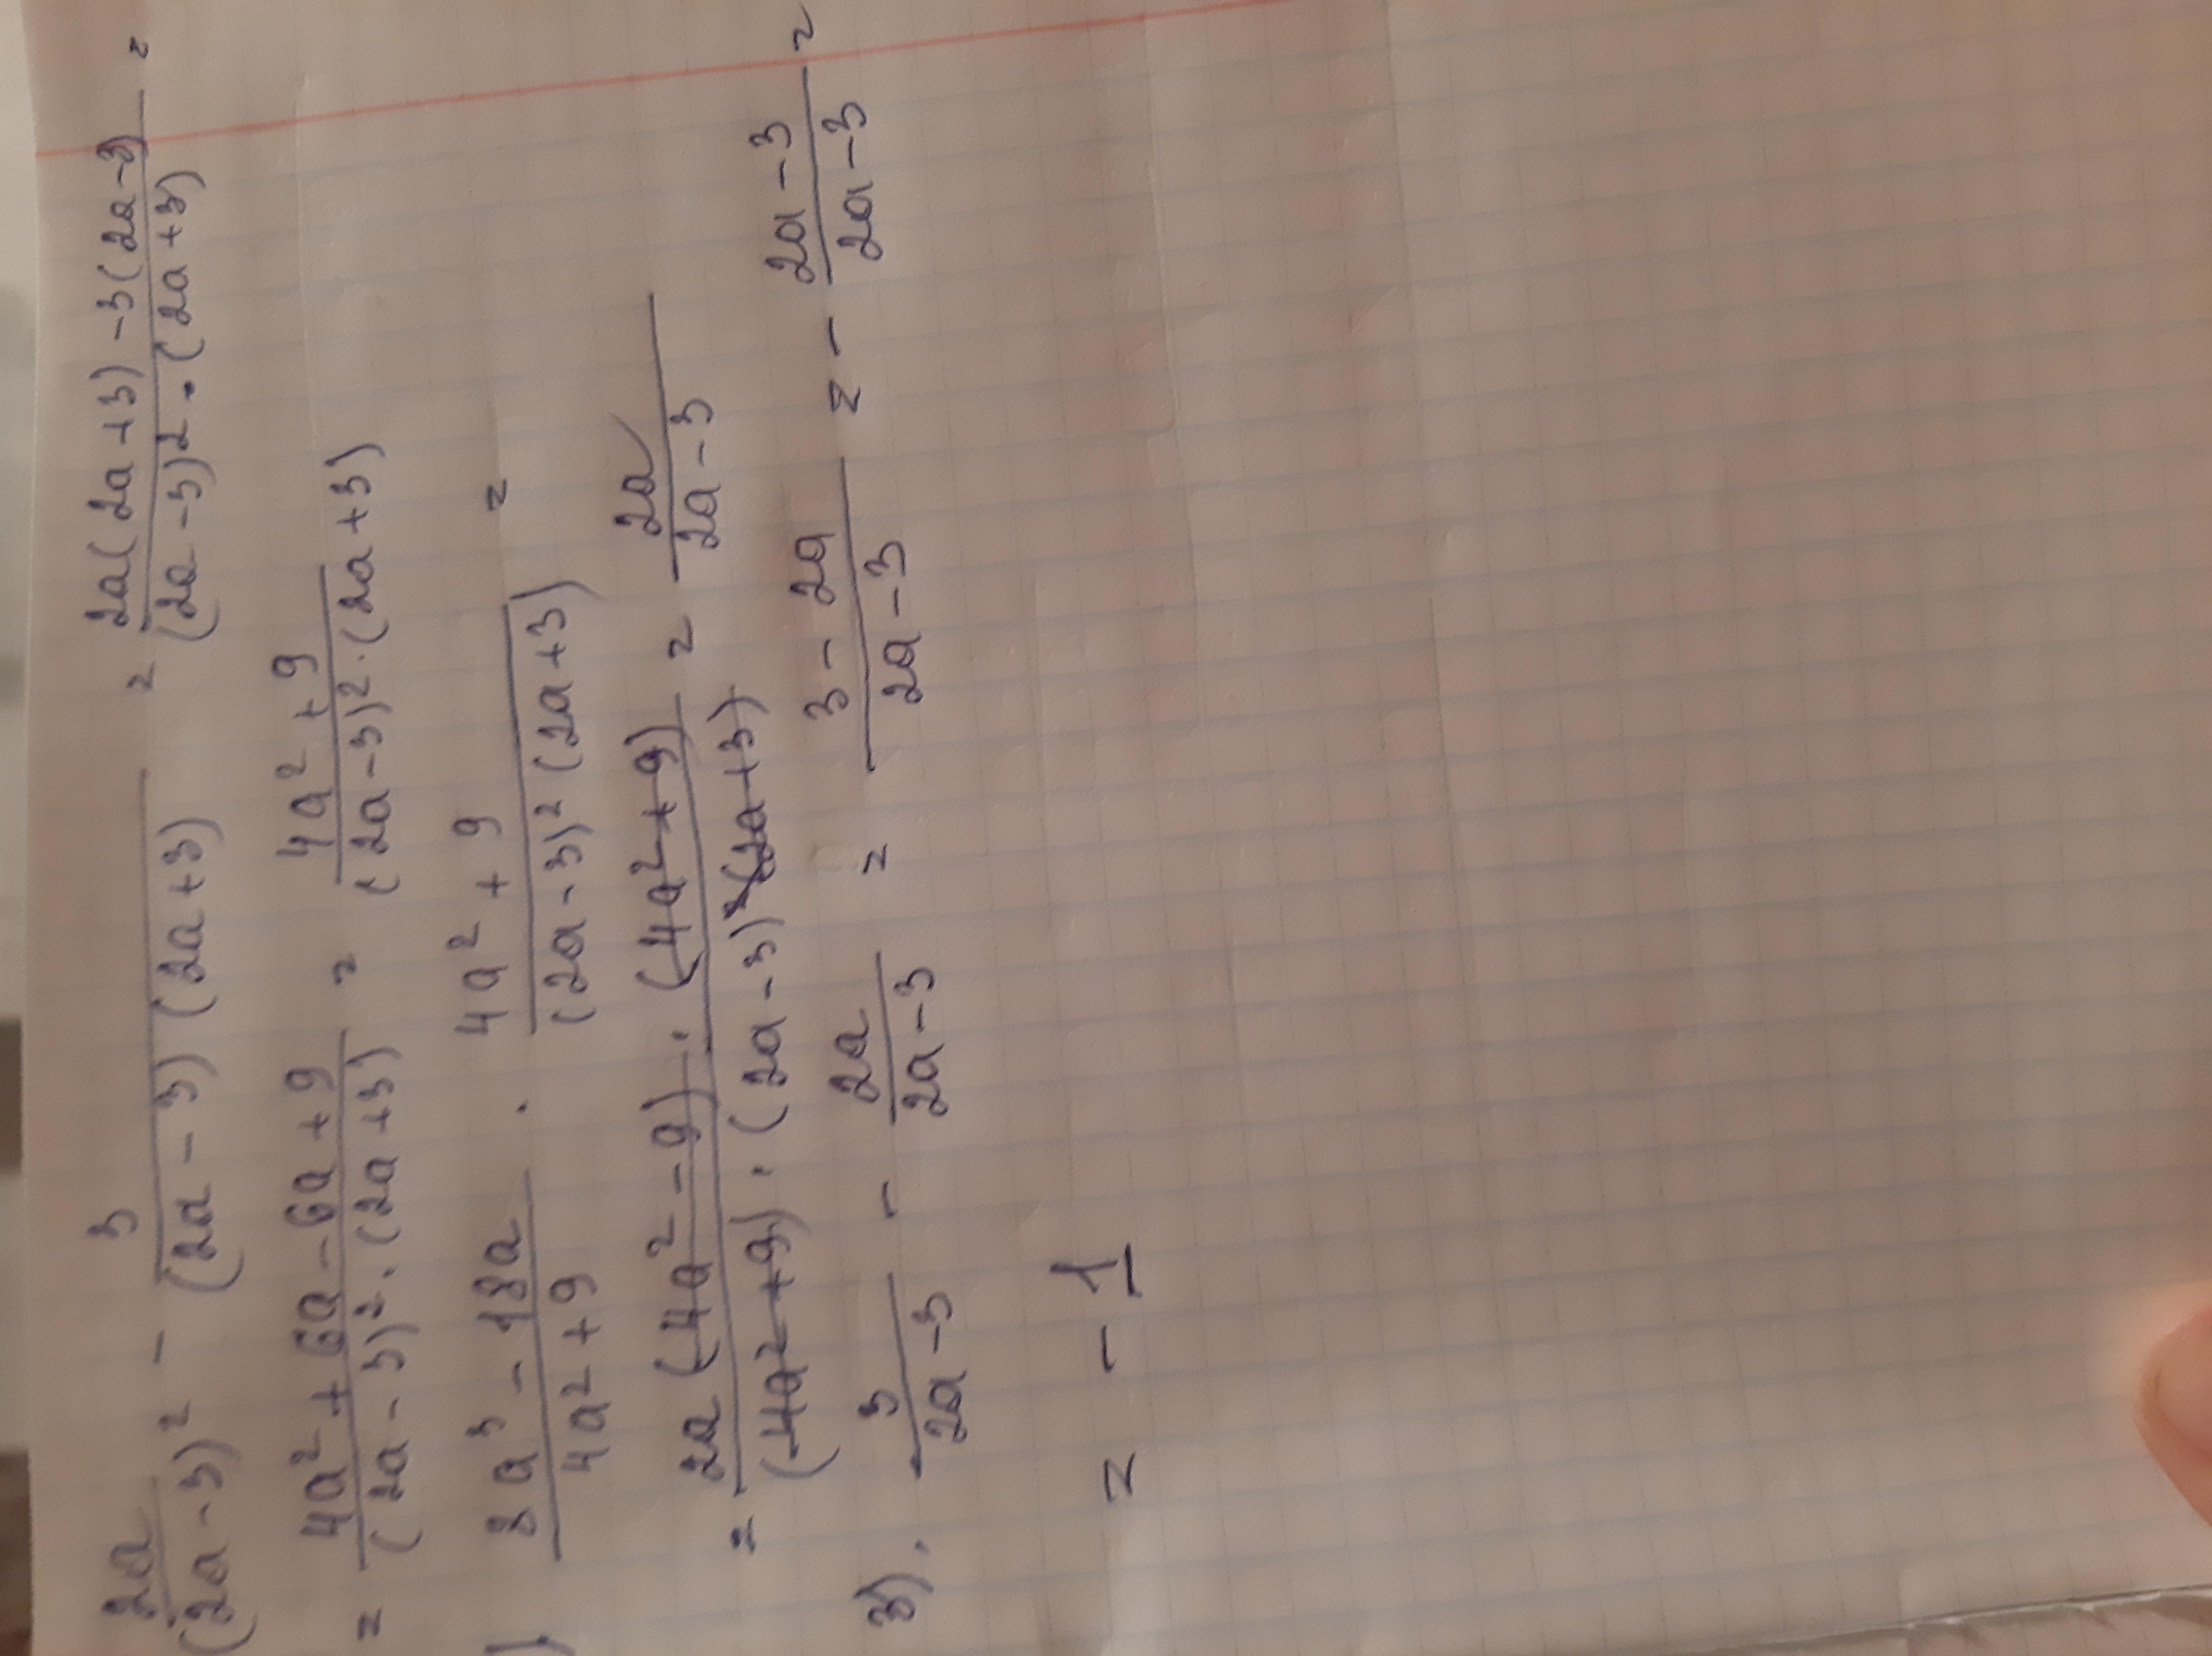 2a/(2a-3)² - 3/((2a-3)(2a+3)) = (2a(2a+3)-3(2a-3))/((2a-3)²·(2a+3)) =
= (4a²+6a-6a+9)/((2a-3)²·(2a+3)) = (4a²+9)/((2a-3)²·(2a+3))
) (8a³-18a)/(4a²+9) · (4a²+9)/((2a-3)²(2a+3)) =
= (2a(4a²-9)·(4a²+9))/((4a²+9)·(2a-3)²(2a+3)) = 2a/(2a-3)
3). 3/(2a-3) - 2a/(2a-3) = (3-2a)/(2a-3) = - (2a-3)/(2a-3) =
= -1